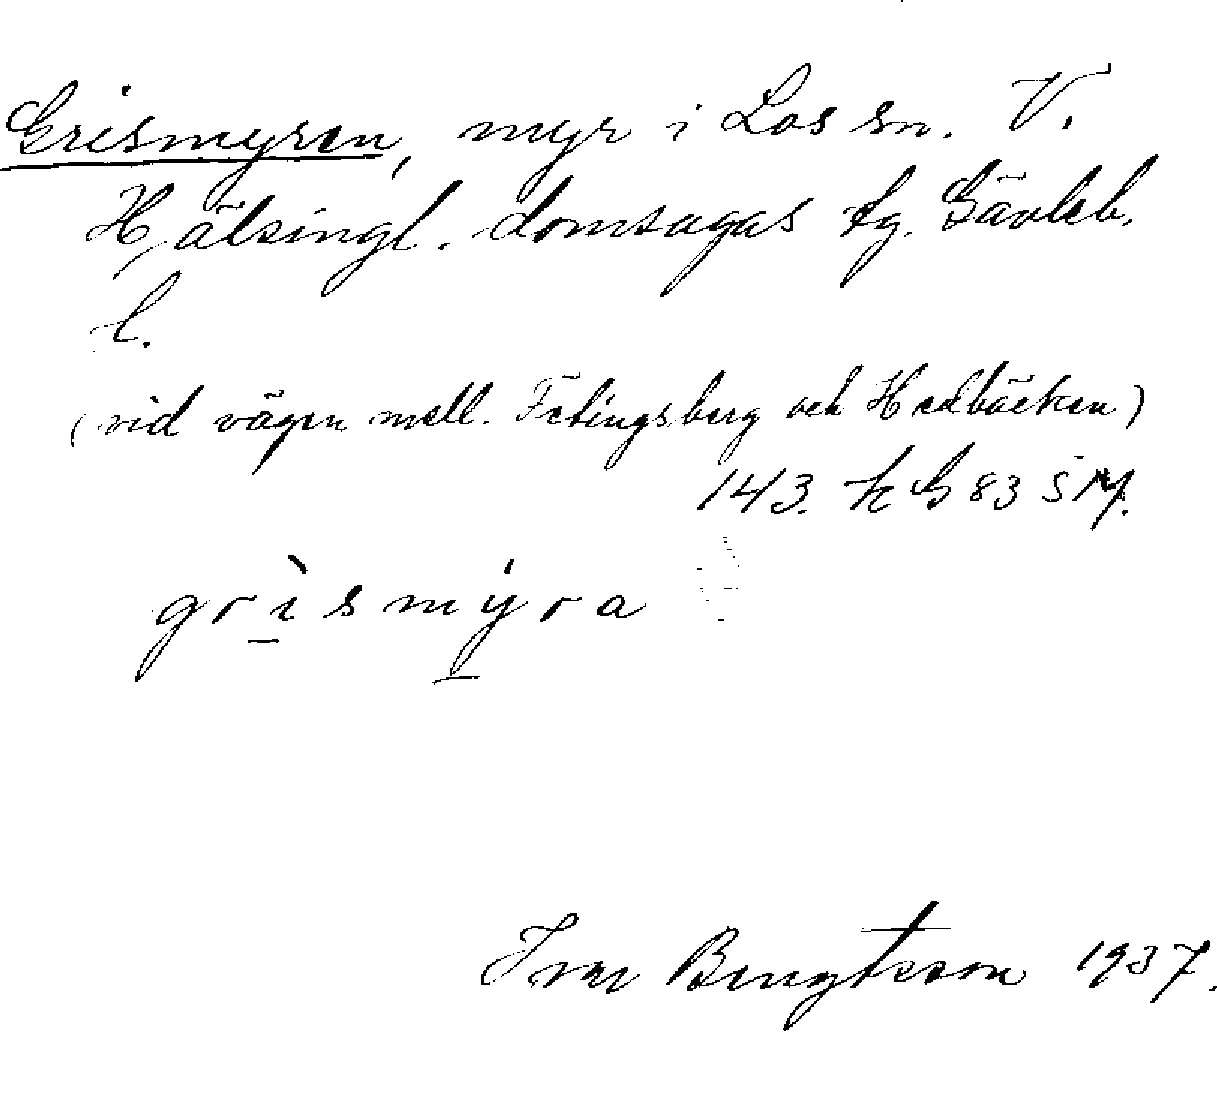 Grismyren, myr i Los sn. V.
Hälsingl. domsagas tg. Gävleb.
l.
(vid vägen mell. Fåtingsberg och Hedbäcken)
143. k G 83 SM.
grìsmýra
Ivar Bengtsson 1937.